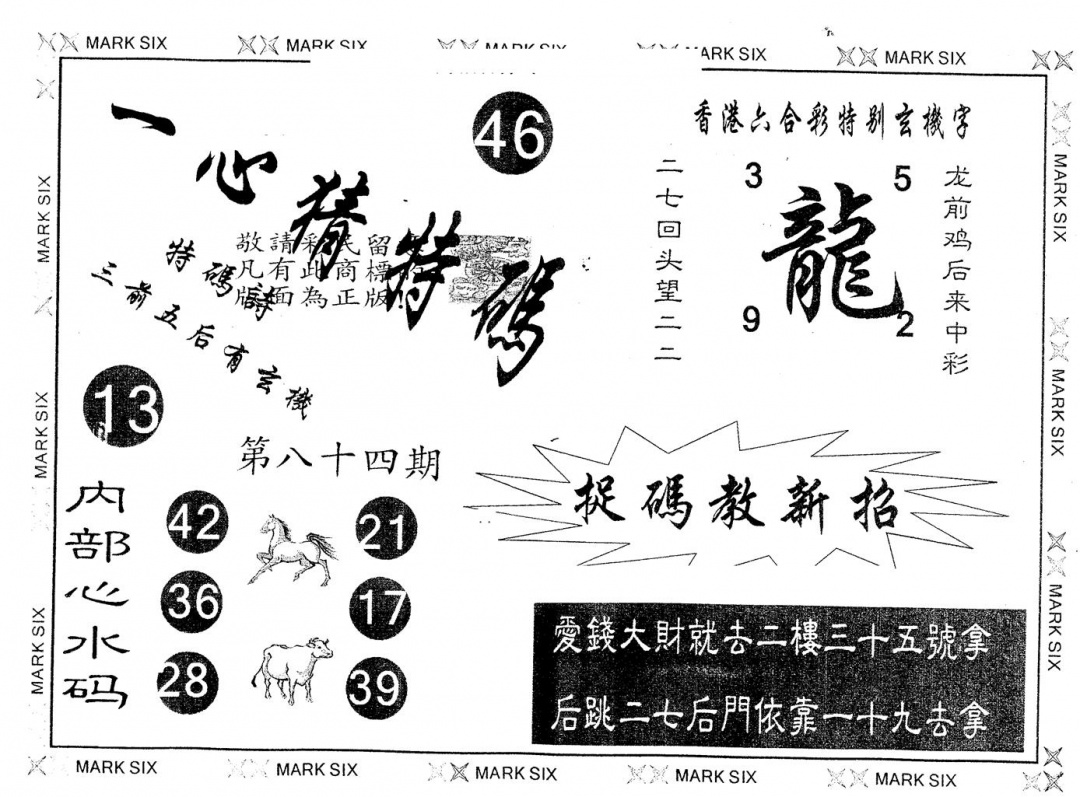 MARK SIX
MARK SIX
MARK SIX
MARK SIX
MARK SIX
一心猜特碼
46
香港六合彩特别玄機字
二七回头望二二
3
5
龍
9
2
龙前鸡后来中彩
敬請彩民留
凡有此商標
版面為正版!
特碼詩
三前五后有玄機
13
第八十四期
内部心水码
42
21
36
17
28
39
捉碼教新招
愛錢大財就去二樓三十五號拿
后跳二七后門依靠一十九去拿
MARK SIX
MARK SIX
MARK SIX
MARK SIX
MARK SIX
MARK SIX
MARK SIX
MARK SIX
MARK SIX
MARK SIX
MARK SIX